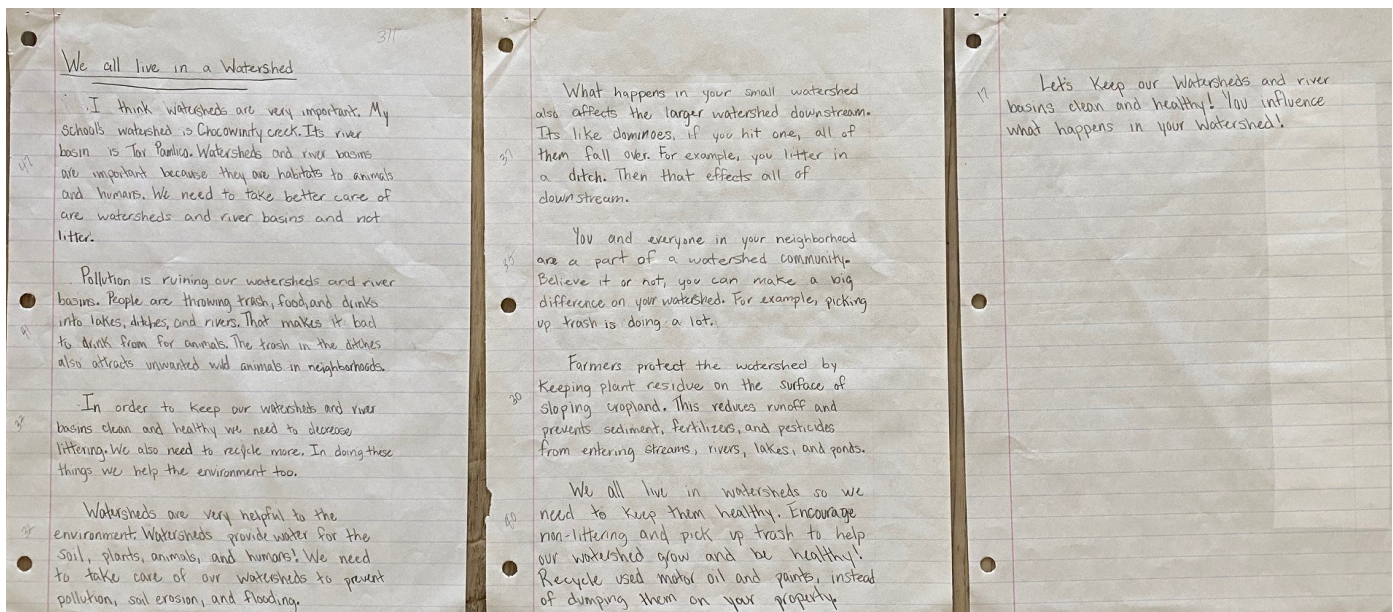 311
We all live in a Watershed
I think watersheds are very important. My
school's watershed is Chocowinty creek. Its river
basin is Tar Pamlico. Watersheds and river basins
are important because they are habitats to animals
and humans. We need to take better care of
are watersheds and river basins and not
litter.
Pollution is ruining our watersheds and river
basins. People are throwing trash, food, and drinks
into lakes, ditches, and rivers. That makes it bad
to drink from for animals. The trash in the ditches
also attracts unwanted wild animals in neighborhoods.
In order to keep our watersheds and river
basins clean and healthy we need to decrease
littering. We also need to recycle more. In doing these
things we help the environment too.
Watersheds are very helpful to the
environment. Watersheds provide water for the
soil, plants, animals, and humans! We need
to take care of our watersheds to prevent
pollution, soil erosion, and flooding.
What happens in your small watershed
also affects the larger watershed downstream.
Its like dominoes, if you hit one, all of
37 them fall over. For example, you litter in
a ditch. Then that effects all of
downstream.
You and everyone in your neighborhood
are a part of a watershed community.
Believe it or not, you can make a big
difference on your watershed. For example, picking
up trash is doing a lot.
Farmers protect the watershed by
Keeping plant residue on the surface of
30 sloping cropland. This reduces runoff and
prevents sediment, fertilizers, and pesticides
from entering streams, rivers, lakes, and ponds.
We all live in watersheds so we
need to keep them healthy. Encourage
non-littering and pick up trash to help
our watershed grow and be healthy!
Recycle used motor oil and paints, instead
of dumping them on your property.
Let's Keep our Watersheds and river
17 basins clean and healthy! You influence
what happens in your Watershed!